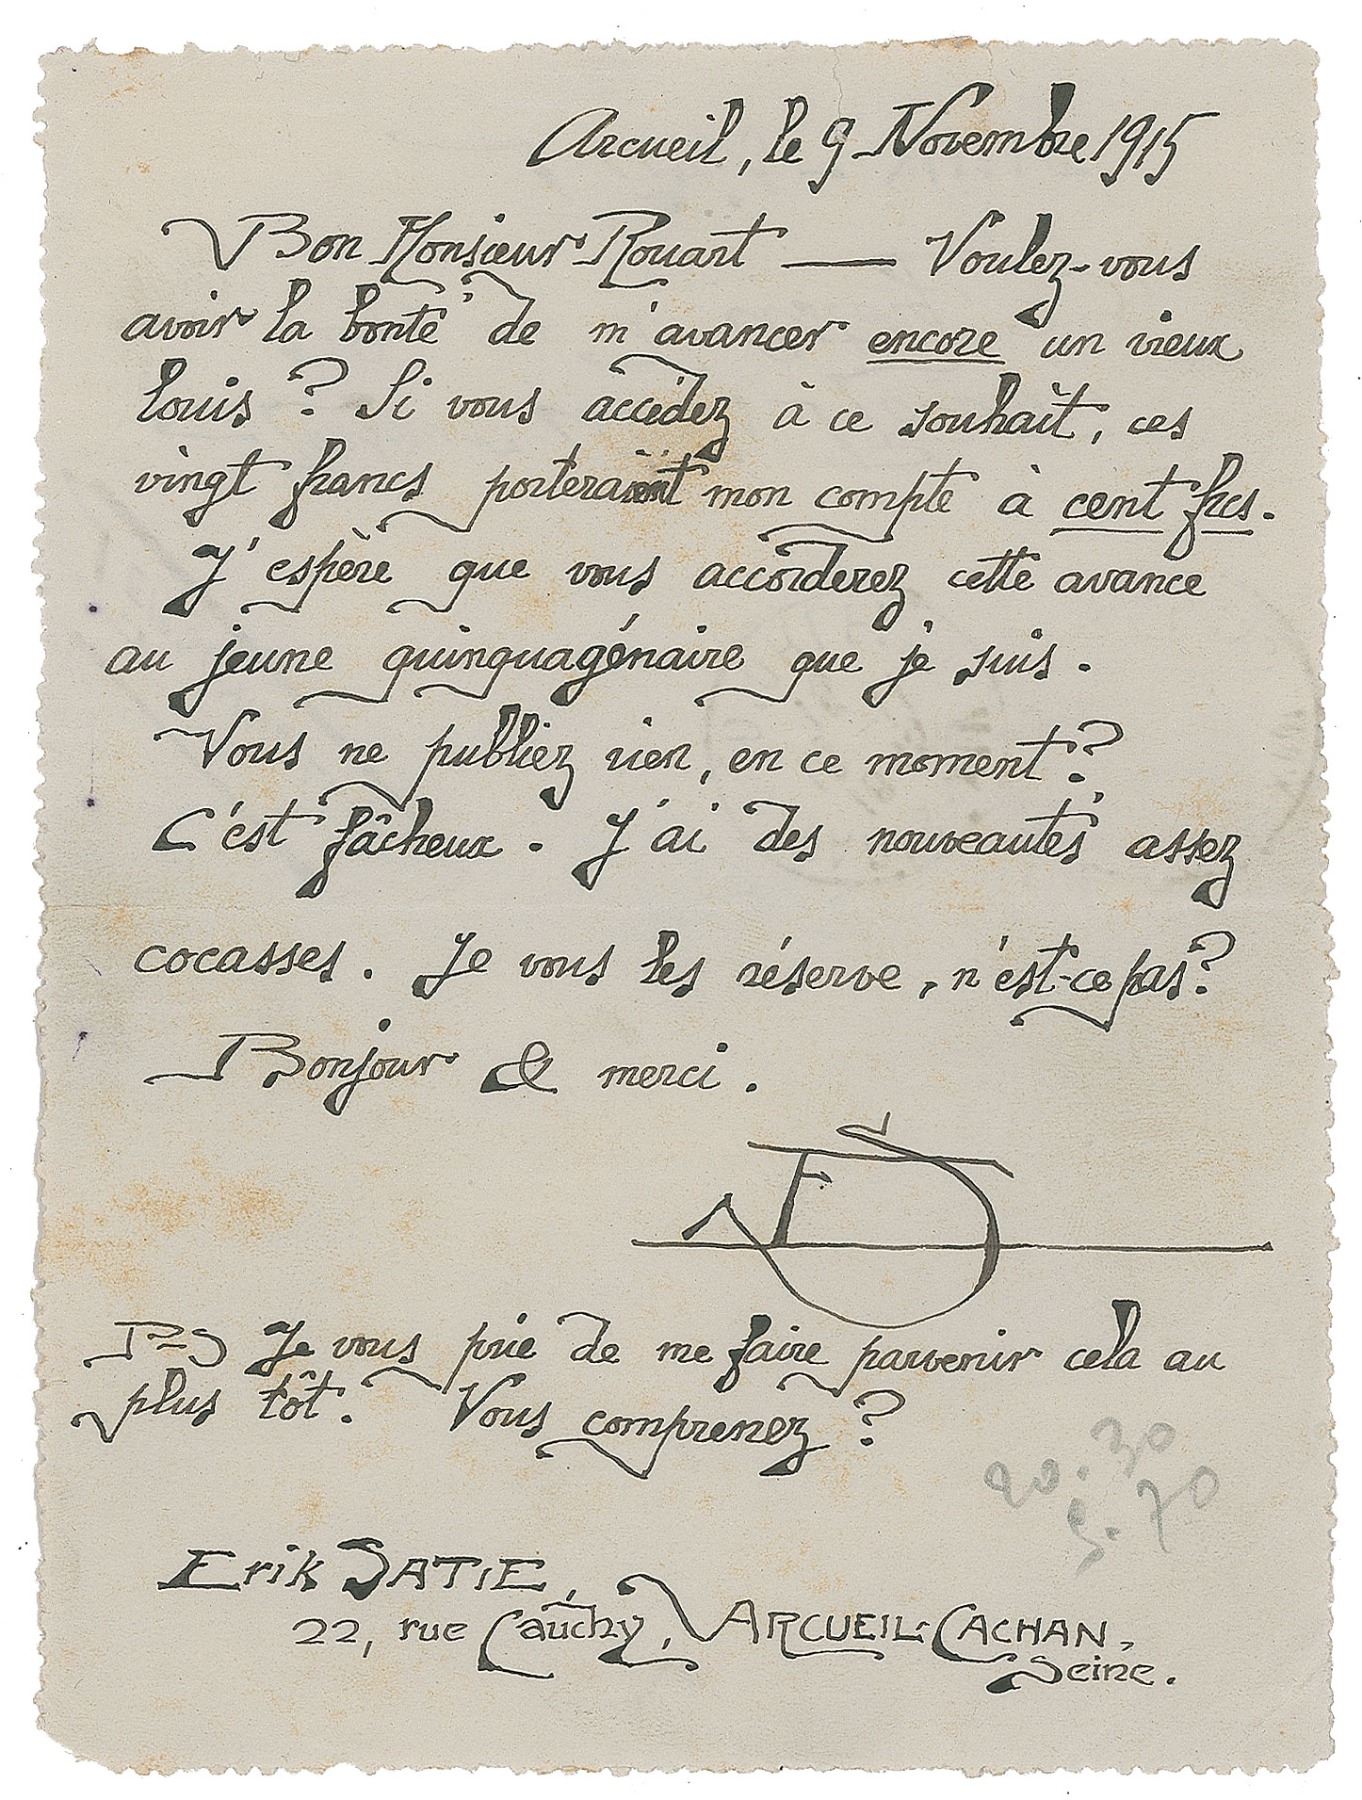 Arcueil, le 9 Novembre 1915
Bon Monsieur Rouart — Voulez-vous
avoir la bonté de m'avancer encore un vieux
louis ? Si vous accédez à ce souhait, ces
vingt francs porteraient mon compte à cent frcs.
J'espère que vous accorderez cette avance
au jeune quinquagénaire que je suis.
Vous ne publiez rien, en ce moment ?
C'est fâcheux. J'ai des nouveautés assez
cocasses. Je vous les réserve, n'est-ce pas ?
Bonjour & merci.
ES
PS Je vous prie de me faire parvenir cela au
plus tôt. Vous comprenez ?
20.30
5.70
Erik SATIE,
22, rue Cauchy, ARCUEIL-CACHAN,
Seine.